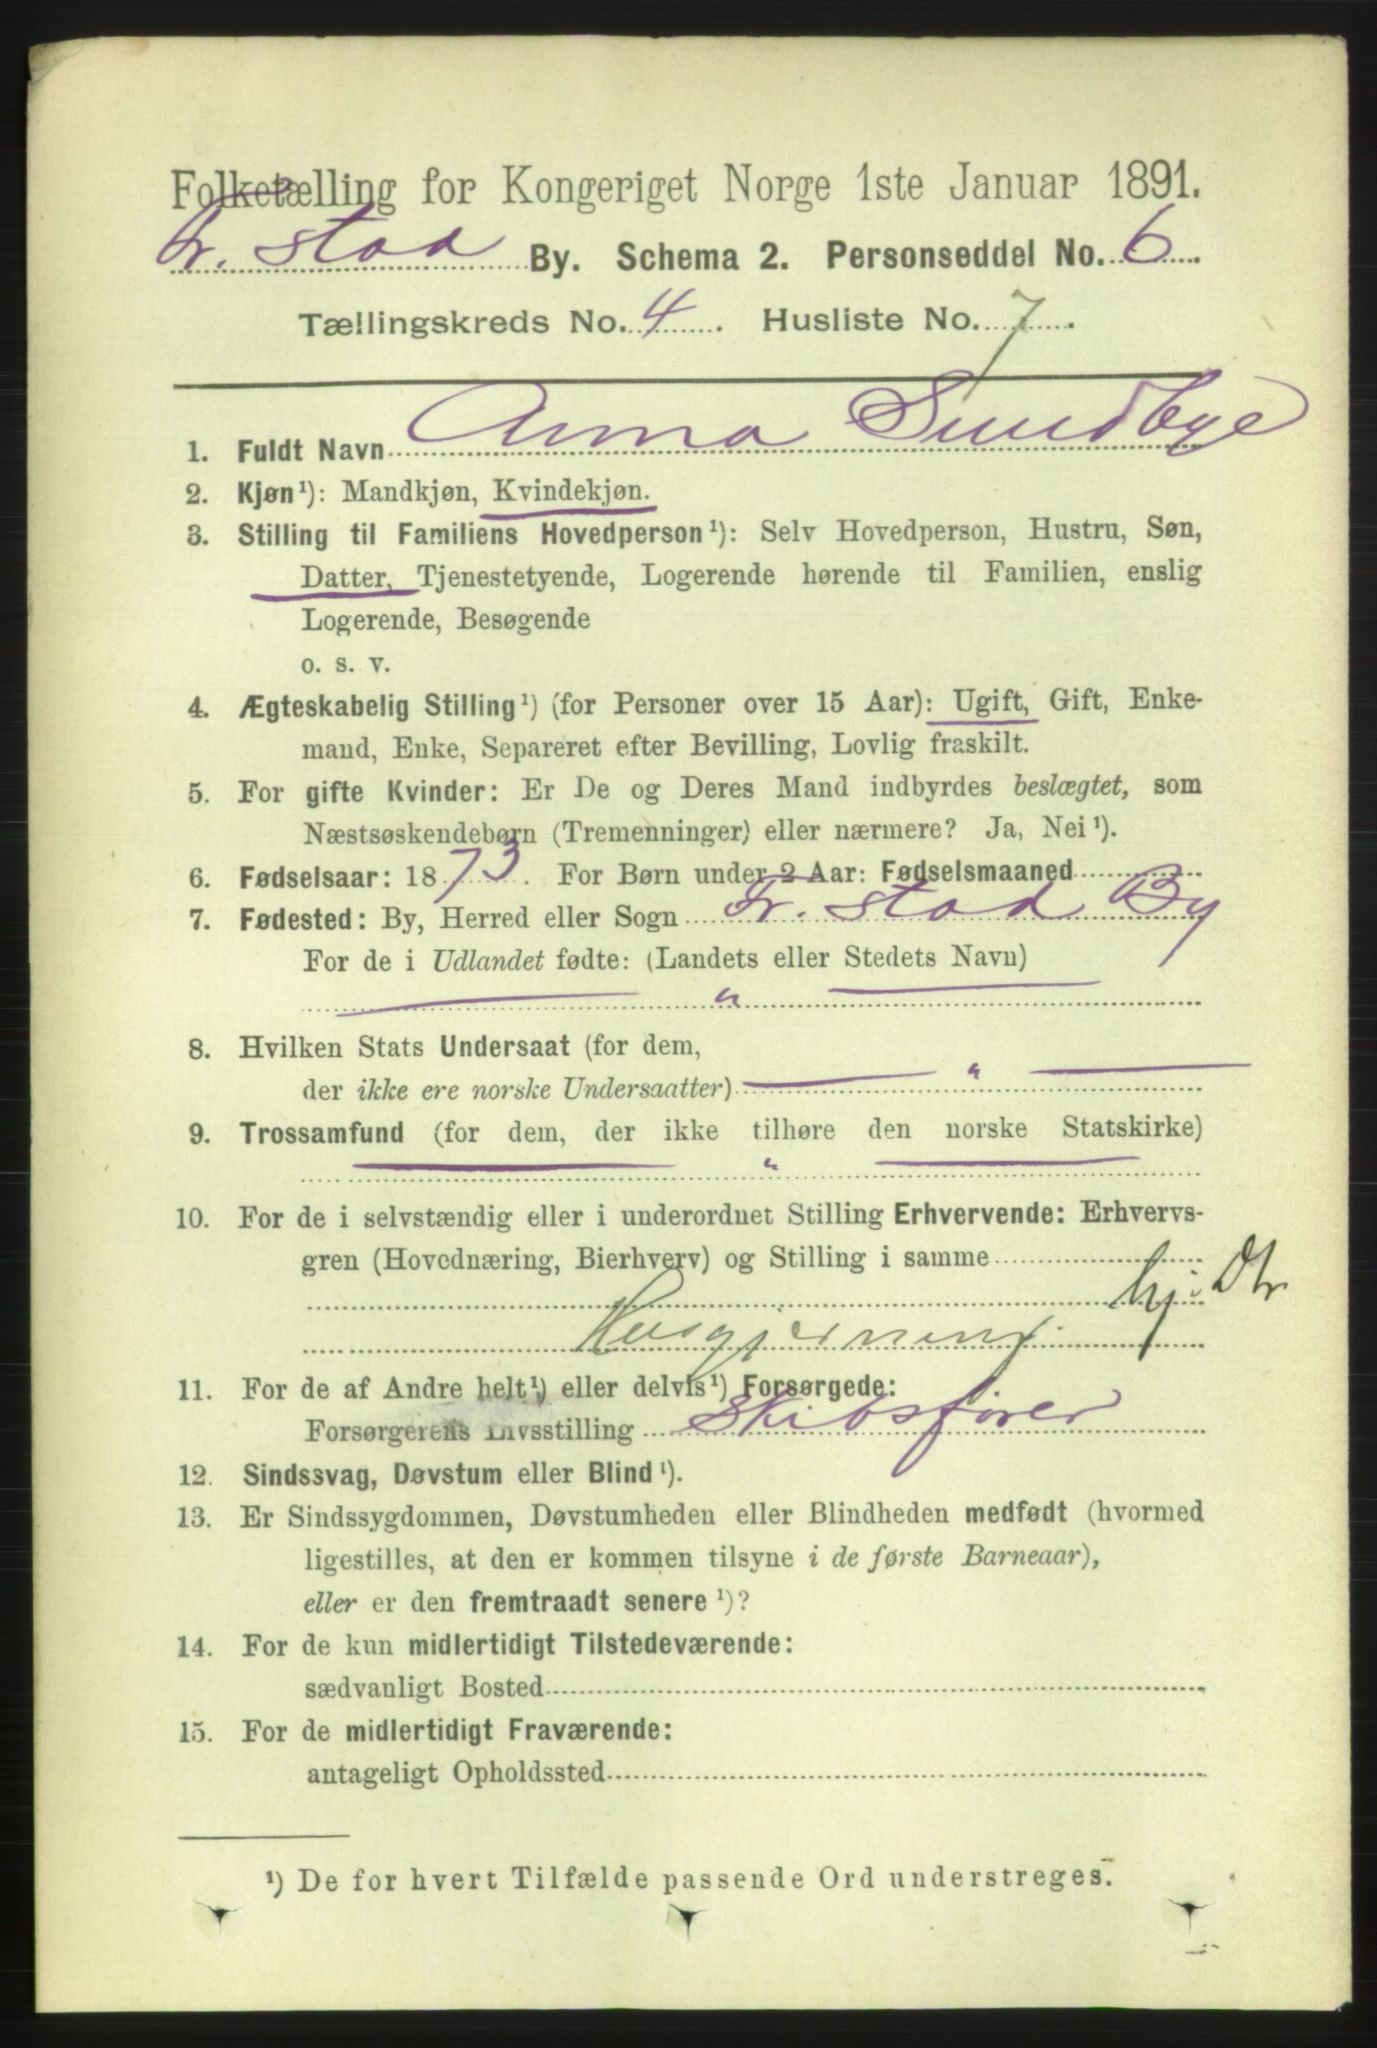 Folketælling for Kongeriget Norge 1ste Januar 1891.
Fr. stad By. Schema 2. Personseddel No. 6
Tællingskreds No. 4. Husliste No. 7.
1. Fuldt Navn Anna Sundbye
2. Kjøn¹): Mandkjøn, Kvindekjøn.
3. Stilling til Familiens Hovedperson¹): Selv Hovedperson, Hustru, Søn,
Datter, Tjenestetyende, Logerende hørende til Familien, enslig
Logerende, Besøgende
o. s. v.
4. Ægteskabelig Stilling¹) (for Personer over 15 Aar): Ugift, Gift, Enke-
mand, Enke, Separeret efter Bevilling, Lovlig fraskilt.
5. For gifte Kvinder: Er De og Deres Mand indbyrdes beslægtet, som
Næstsøskendebørn (Tremenninger) eller nærmere? Ja, Nei¹).
6. Fødselsaar: 1873. For Børn under 2 Aar: Fødselsmaaned
7. Fødested: By, Herred eller Sogn Fr. stad By
For de i Udlandet fødte: (Landets eller Stedets Navn)
— " —
8. Hvilken Stats Undersaat (for dem,
der ikke ere norske Undersaatter) — " —
9. Trossamfund (for dem, der ikke tilhøre den norske Statskirke)
— " —
10. For de i selvstændig eller i underordnet Stilling Erhvervende: Erhvervs-
gren (Hovednæring, Bierhverv) og Stilling i samme
hj. Dtr
Husgjerning
11. For de af Andre helt¹) eller delvis¹) Forsørgede:
Forsørgerens Livsstilling Skibsfører
12. Sindssvag, Døvstum eller Blind¹).
13. Er Sindssygdommen, Døvstumheden eller Blindheden medfødt (hvormed
ligestilles, at den er kommen tilsyne i de første Barneaar),
eller er den fremtraadt senere¹)?
14. For de kun midlertidigt Tilstedeværende:
sædvanligt Bosted
15. For de midlertidigt Fraværende:
antageligt Opholdssted
¹) De for hvert Tilfælde passende Ord understreges.